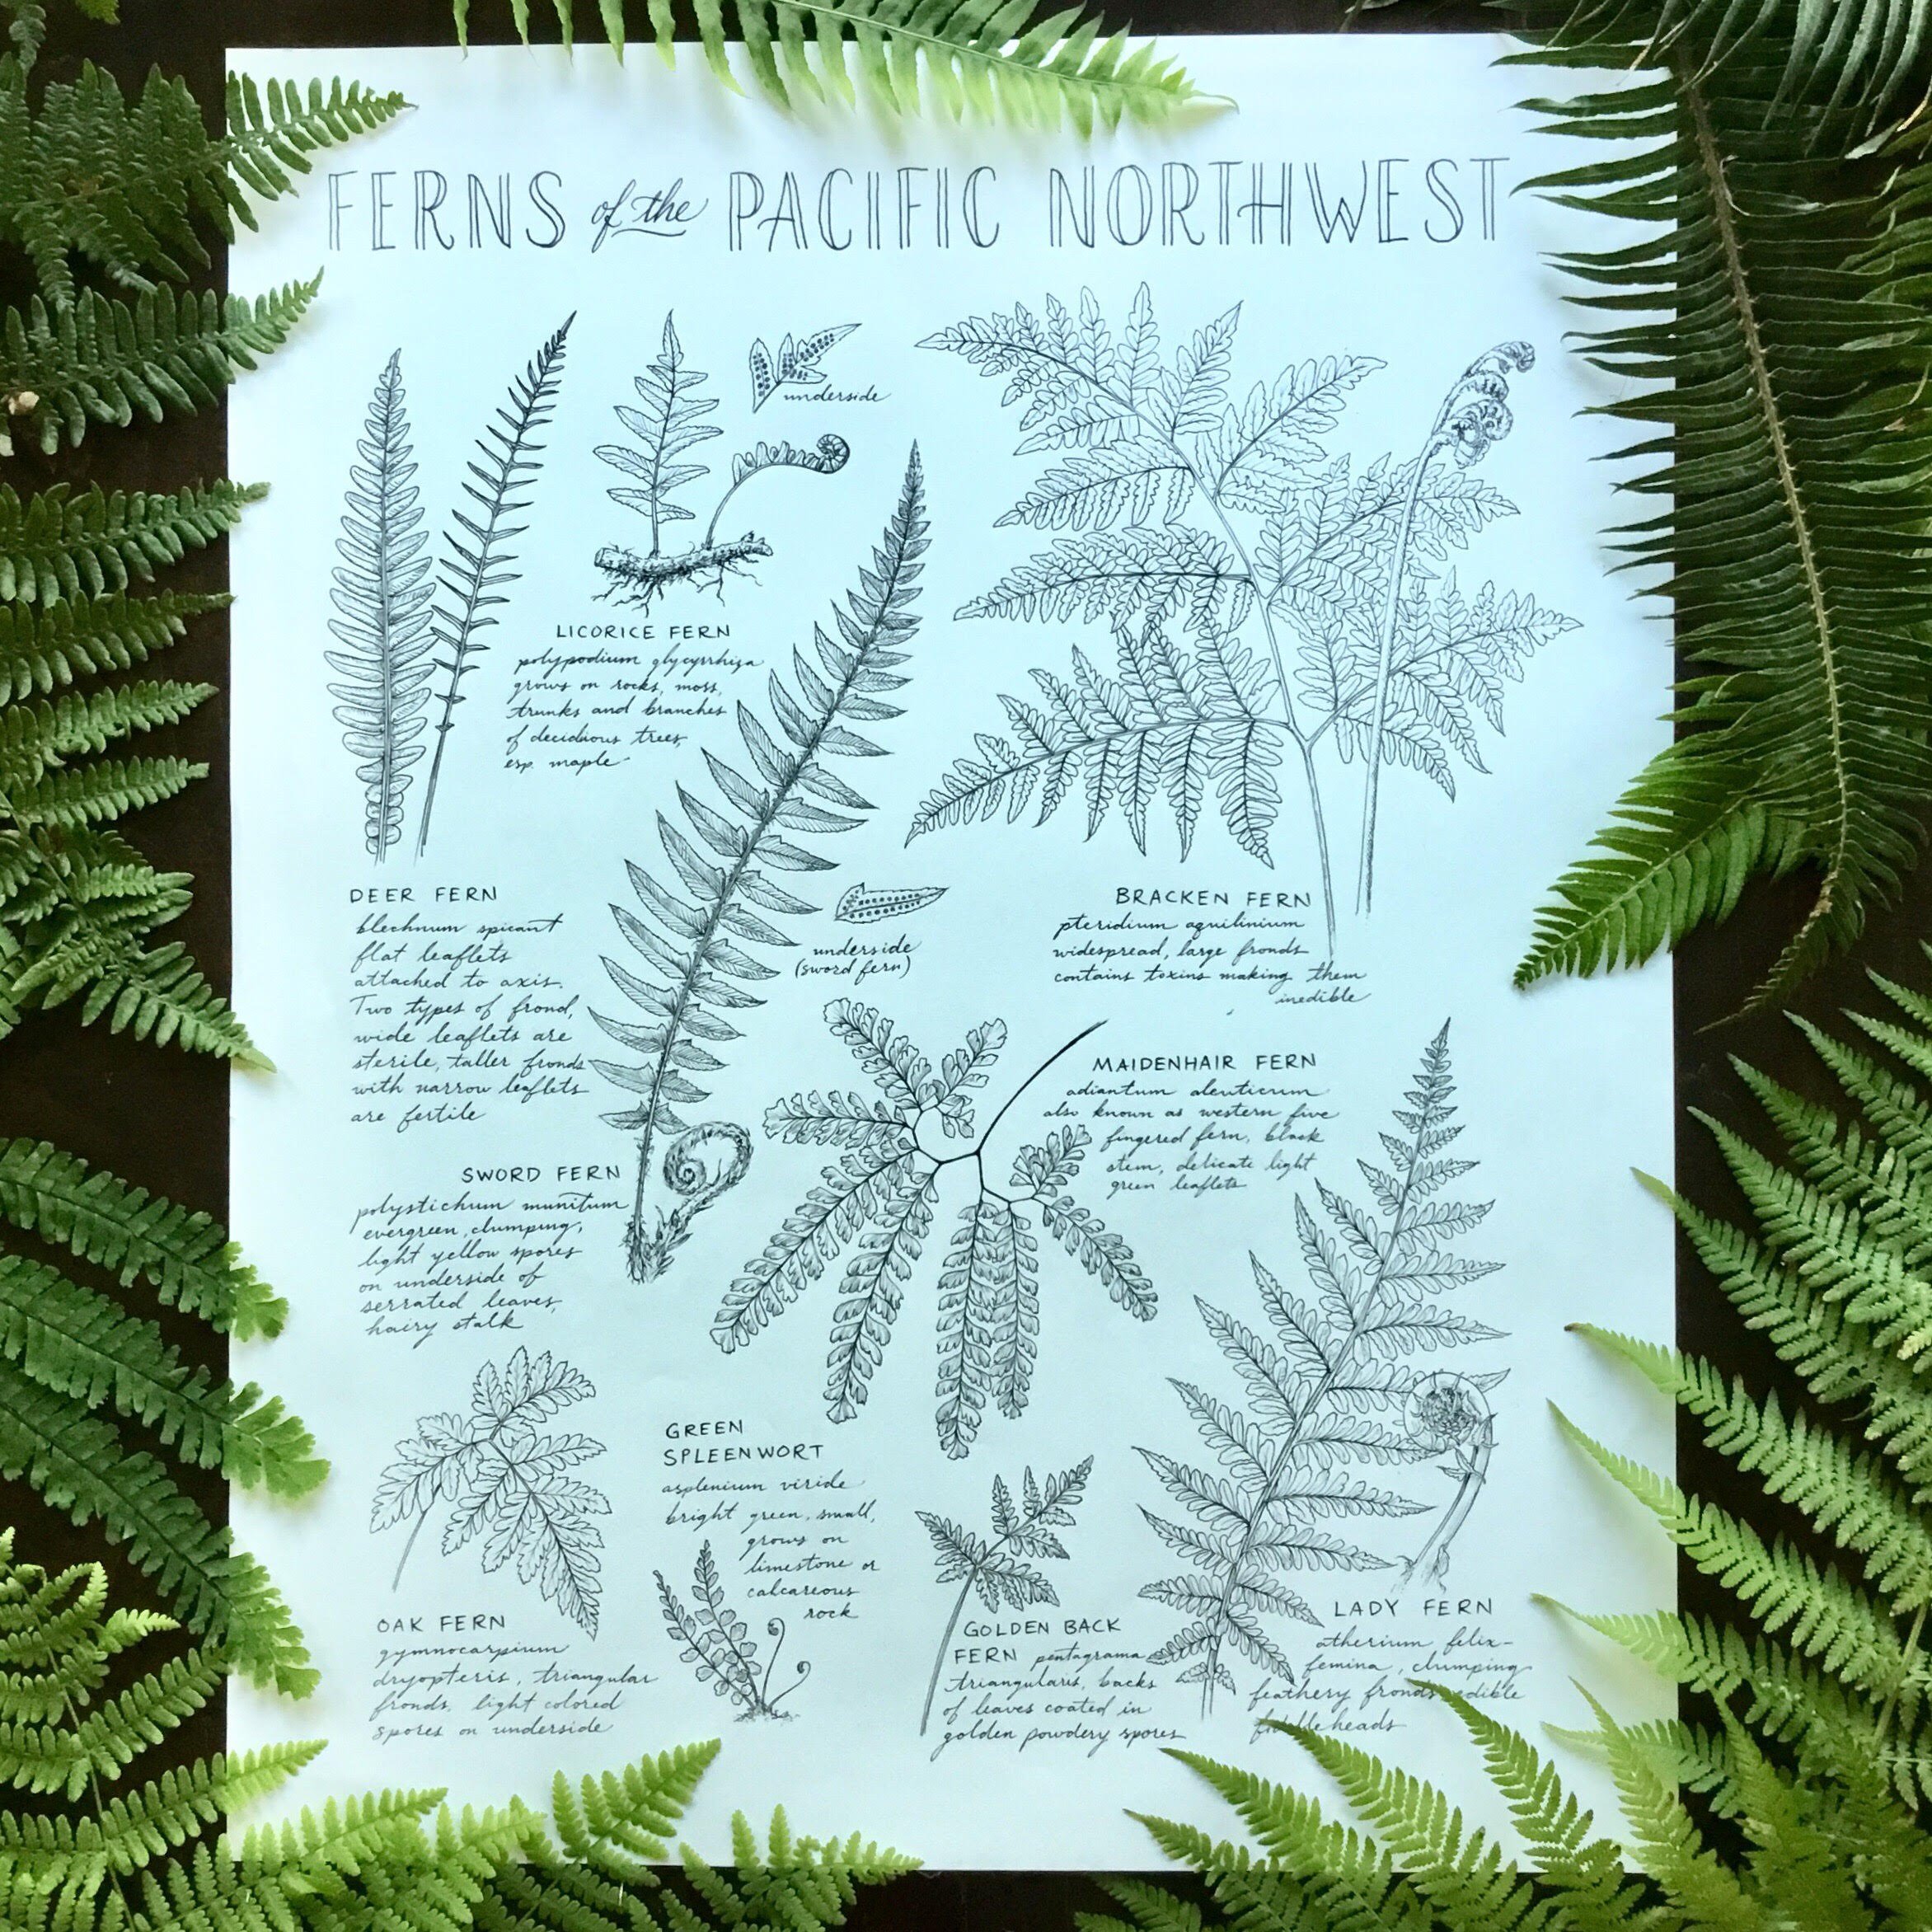 FERNS of the PACIFIC NORTHWEST
underside
LICORICE FERN
polypodium glycyrrhiza
grows on rocks, moss,
trunks and branches
of deciduous trees,
esp. maple
DEER FERN
blechnum spicant
flat leaflets
attached to axis.
Two types of frond,
wide leaflets are
sterile, taller fronds
with narrow leaflets
are fertile
underside
(sword fern)
BRACKEN FERN
pteridium aquilinium
widespread, large fronds
contains toxins making them
inedible
MAIDENHAIR FERN
adiantum aleuticum
also known as western five
fingered fern, black
stem, delicate light
green leaflets
SWORD FERN
polystichum munitum
evergreen, clumping,
light yellow spores
on underside of
serrated leaves,
hairy stalk
GREEN
SPLEENWORT
asplenium viride
bright green, small,
grows on
limestone or
calcareous
rock
OAK FERN
gymnocarpium
dryopteris, triangular
fronds, light colored
spores on underside
GOLDEN BACK
FERN pentagrama
triangularis, backs
of leaves coated in
golden powdery spores
LADY FERN
atherium felix-
femina, clumping
feathery fronds edible
fiddleheads